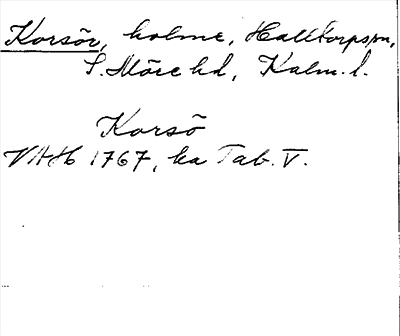 Korsör, holme, Halltorps sn,
S. Möre hd, Kalm. l.
Korsö
VAH 1767, ka Tab. V.